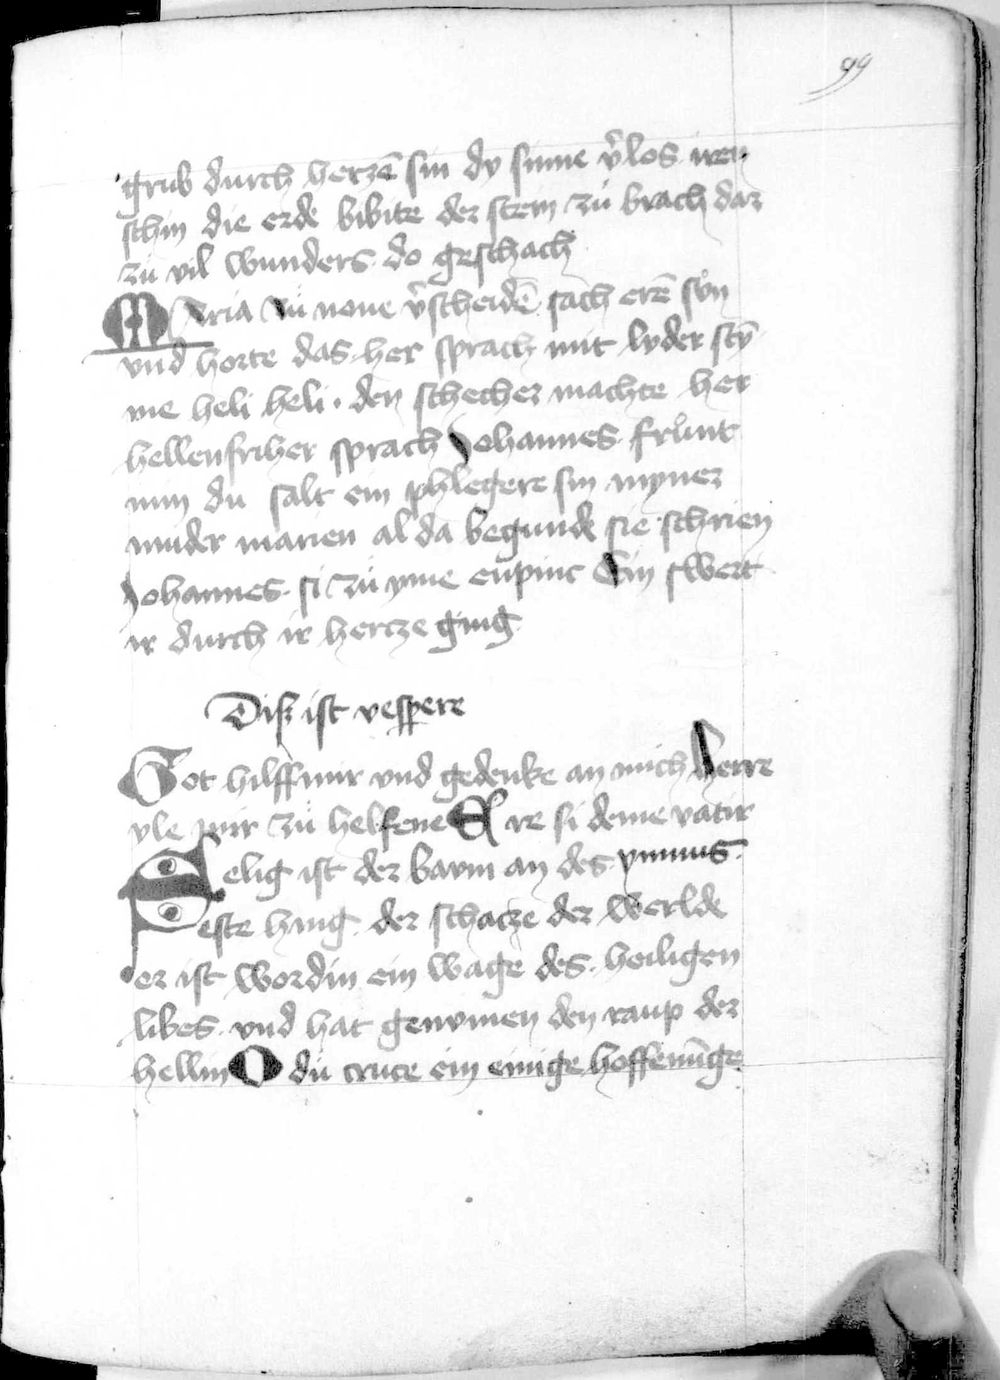 99
grub durch herzē sin dy sunne v̄los iren
schin die erde bibite der stein zů brach dar
zů vil wunders do geschach
Maria zů none v̄scheidē sach erē sůn
vnd horte das her sprach mit luder stȳ
me heli heli · den schecher machte her
hellenfriher sprach Johannes frůnt
min du salt ein phlegere sin myner
muder marien al da begunde sie schrien
Johannes si zů yme enpinc Ein swert
ir durch ir hertze ging
Diß ist vespere
Got hilff mir vnd gedenke an mich herre
yle mir zů helfene Ere si deme vatir
Selig ist der baum an des ymnus
este hing der schatze der werlde
er ist wordin ein wage des heiligen
libes vnd hat genomen den raup der
hellin O dů cruce ein einige hoffenūge